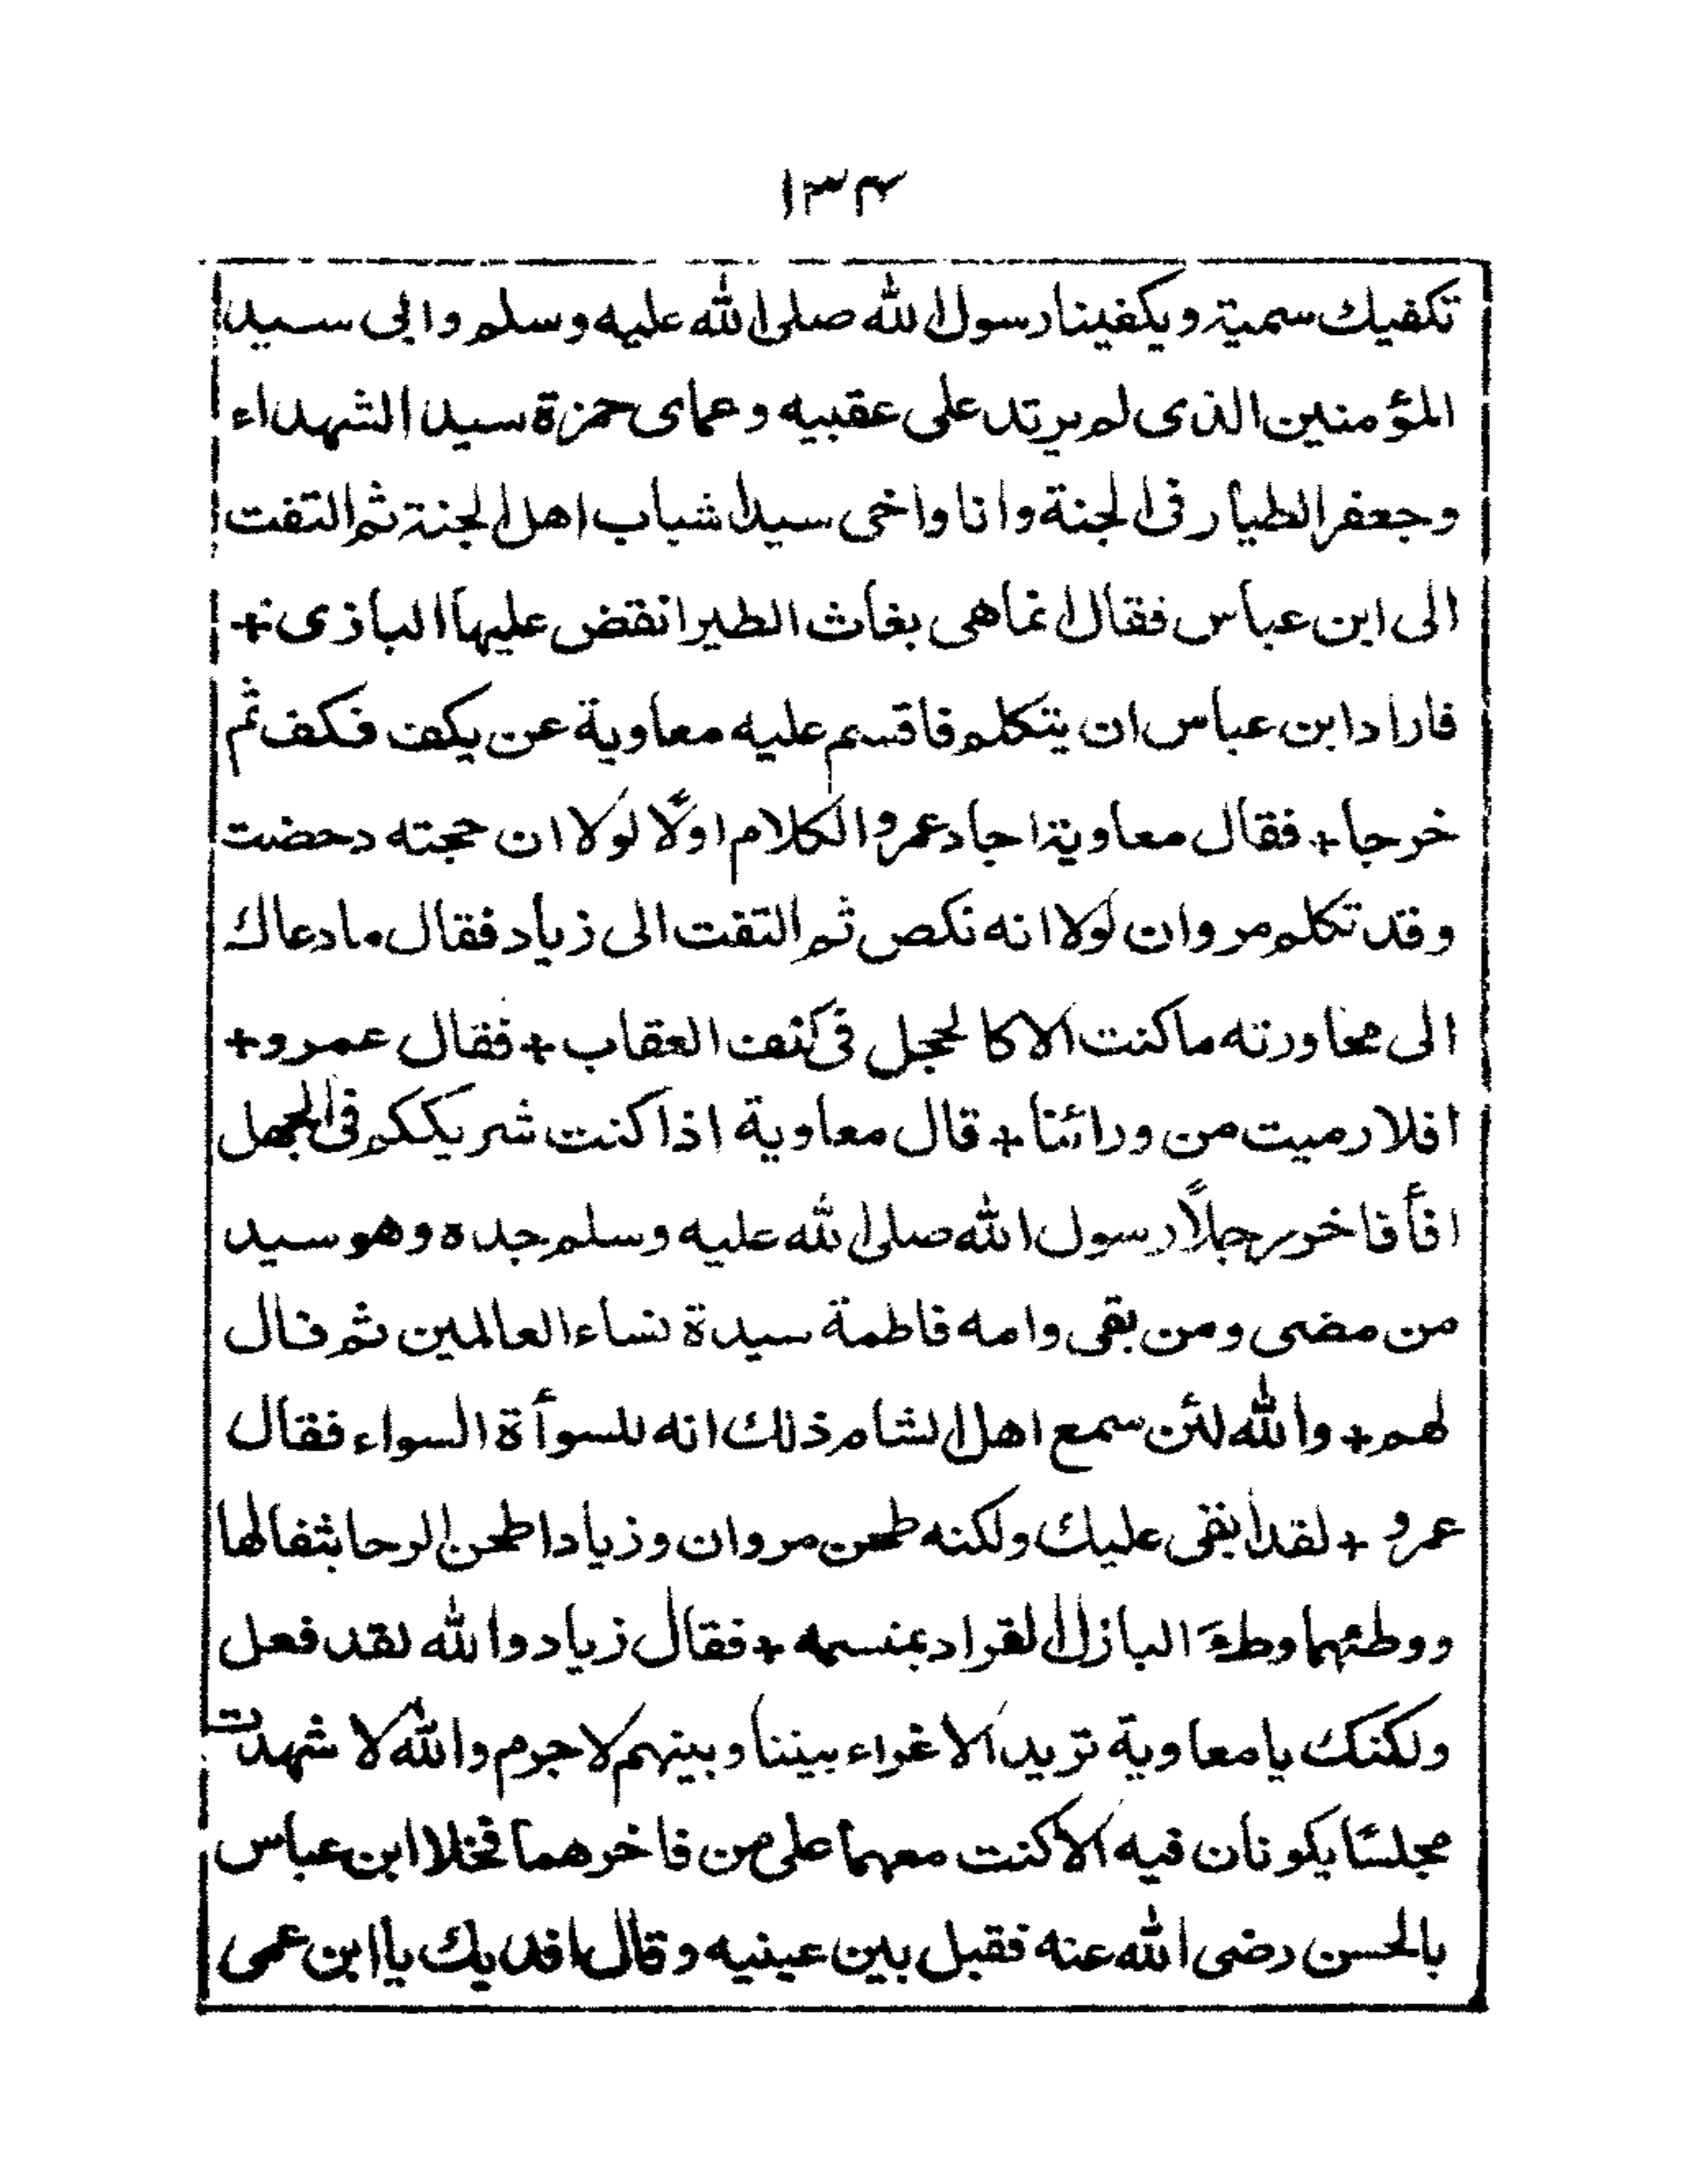 ١٣٤
تكفيك سمية ويكفينا رسول الله صلى الله عليه وسلم وابى سيد
المؤمنين الذى لم يرتد على عقبيه وعماى حمزة سيد الشهداء
وجعفر الطيار فى الجنة وانا واخى سيدا شباب اهل الجنة ثم التفت
الى ابن عباس فقال انما هى بغاث الطير انقض عليها البازى +
فاراد ابن عباس ان يتكلم فاقسم عليه معاوية عن يكف فكف ثم
خرجا + فقال معاوية اجاد عمرو الكلام اولًا لولا ان حجته دحضت
وقد تكلم مروان لولا انه نكص ثم التفت الى زياد فقال ما دعاك
الى محاورته ما كنت الا كالحجل فى كنف العقاب + فقال عمرو +
افلا رميت من ورائنا + قال معاوية اذا كنت شريككم فى الجهل
افأفاخر رجلًا رسول الله صلى الله عليه وسلم جده وهو سيد
من مضى ومن بقى وامه فاطمة سيدة نساء العالمين ثم قال
لهم + والله لئن سمع اهل الشام ذلك انه للسوأة السواء فقال
عمرو + لقد ابقى عليك ولكنه طحن مروان وزيادا طحن الرحا بثفالها
ووطئهما وطءَ البازل القراد بمنسمه + فقال زياد والله لقد فعل
ولكنك يا معاوية تريد الاغراء بيننا وبينهم لا جرم والله لا شهدت
مجلسًا يكونان فيه الا كنت معهما على من فاخرهما فخلا ابن عباس
بالحسن رضى الله عنه فقبل بين عينيه وقال افديك يا ابن عمى